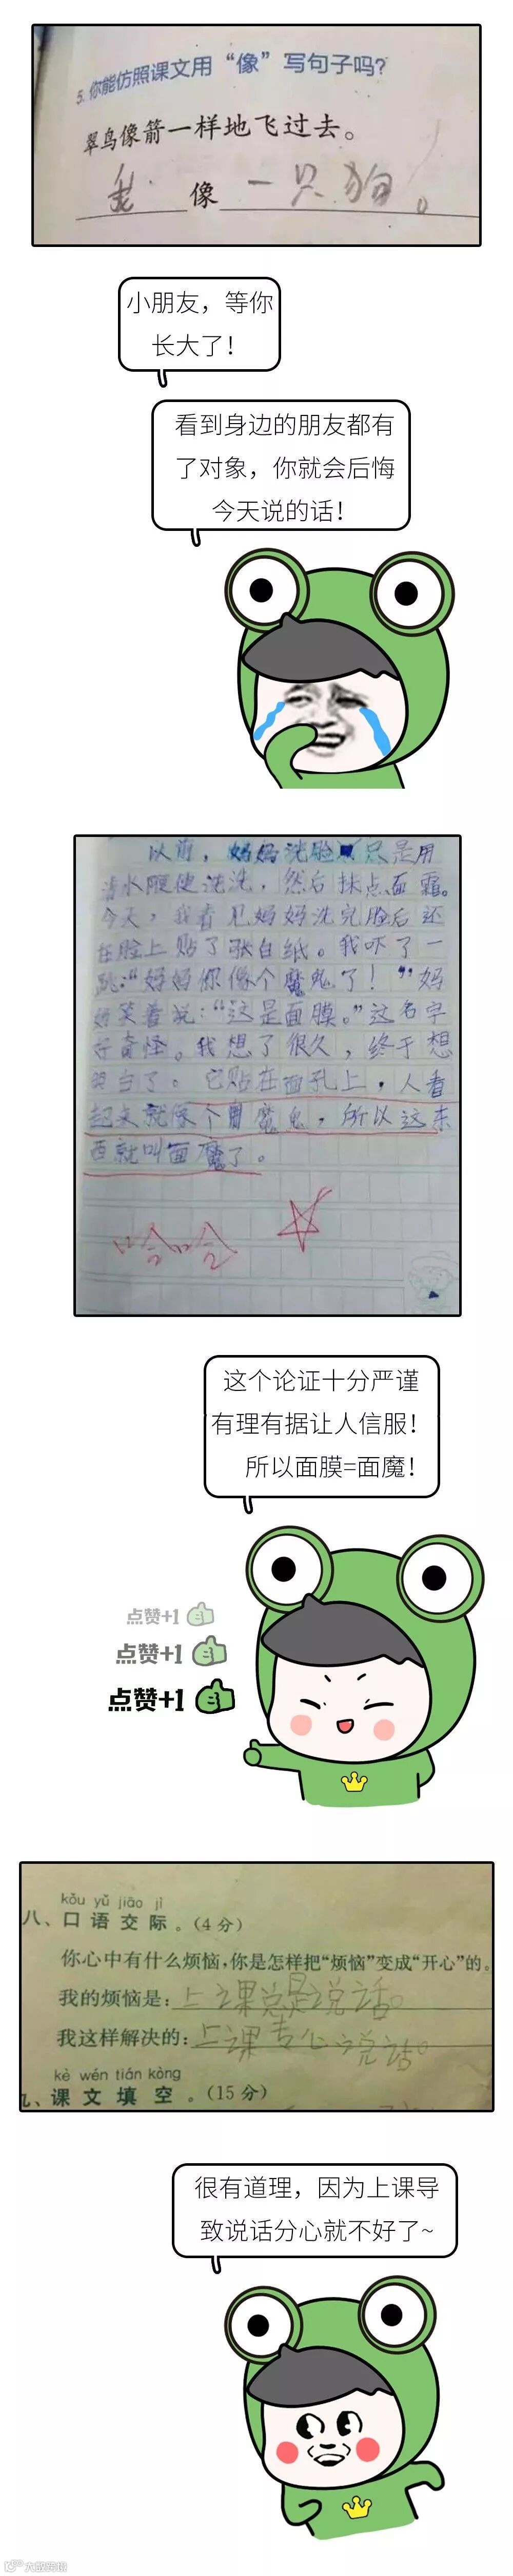 5. 你能仿照课文用“像”写句子吗？
翠鸟像箭一样地飞过去。
我 像 一只狗。
小朋友，等你
长大了！
看到身边的朋友都有
了对象，你就会后悔
今天说的话！
以前，妈妈洗脸只是用
清水随便洗洗，然后抹点面霜。
今天，我看见妈妈洗完脸后还
在脸上贴了张白纸。我吓了一
跳：“妈妈你像个魔鬼了！”妈
妈笑着说：“这是面膜。”这名字
好奇怪。我想了很久，终于想
明白了。它贴在面孔上，人看
起来就像个魔鬼，所以这东
西就叫面魔了。
哈哈
这个论证十分严谨
有理有据让人信服！
所以面膜=面魔！
点赞+1
点赞+1
点赞+1
kǒu yǔ jiāo jì
八、口语交际。（4分）
你心中有什么烦恼，你是怎样把“烦恼”变成“开心”的。
我的烦恼是：上课总是说话。
我这样解决的：上课专心说话。
kè wén tián kòng
九、课文填空。（15分）
很有道理，因为上课导
致说话分心就不好了~